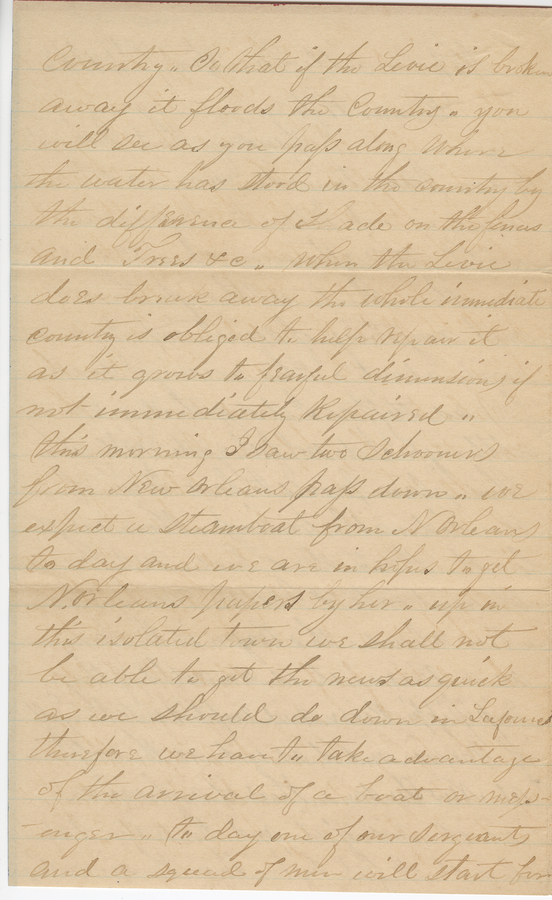 Country,, So that if the Levie is broken
away it floods the Country,, you
will see as you pass along where
the water has stood in the country by
the difference of Shade on the fences
and Trees &c,, When the Levie
does break away the whole immediate
country is obliged to help repair it
as it grows to fearful dimensions if
not immediately Repaired,,
this morning I saw two Schooners
from New Orleans pass down,, we
expect a steamboat from N Orleans
to day and we are in hopes to get
N. Orleans papers by her,, up in
this isolated town we shall not
be able to get the news as quick
as we should do down in
therefore we have to take advantage
of the arrival of a boat or mess-
enger,, to day one of our Sergeants
and a squad of men will start for